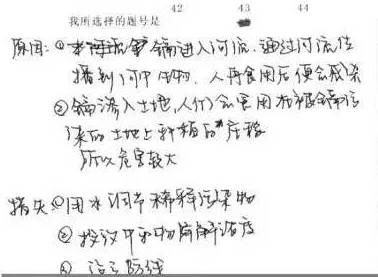 42 43 44
我所选择的题号是
原因:① 镉进入河流.通过河流传
播到河中生物.人再食用后便会感染
②镉渗入土地,人们会食用被镉污
染的土地上种植的庄稼
所以危害较大
措失①用水调节稀释污染物
② 投放中和物降解浓度
③ 设立防线